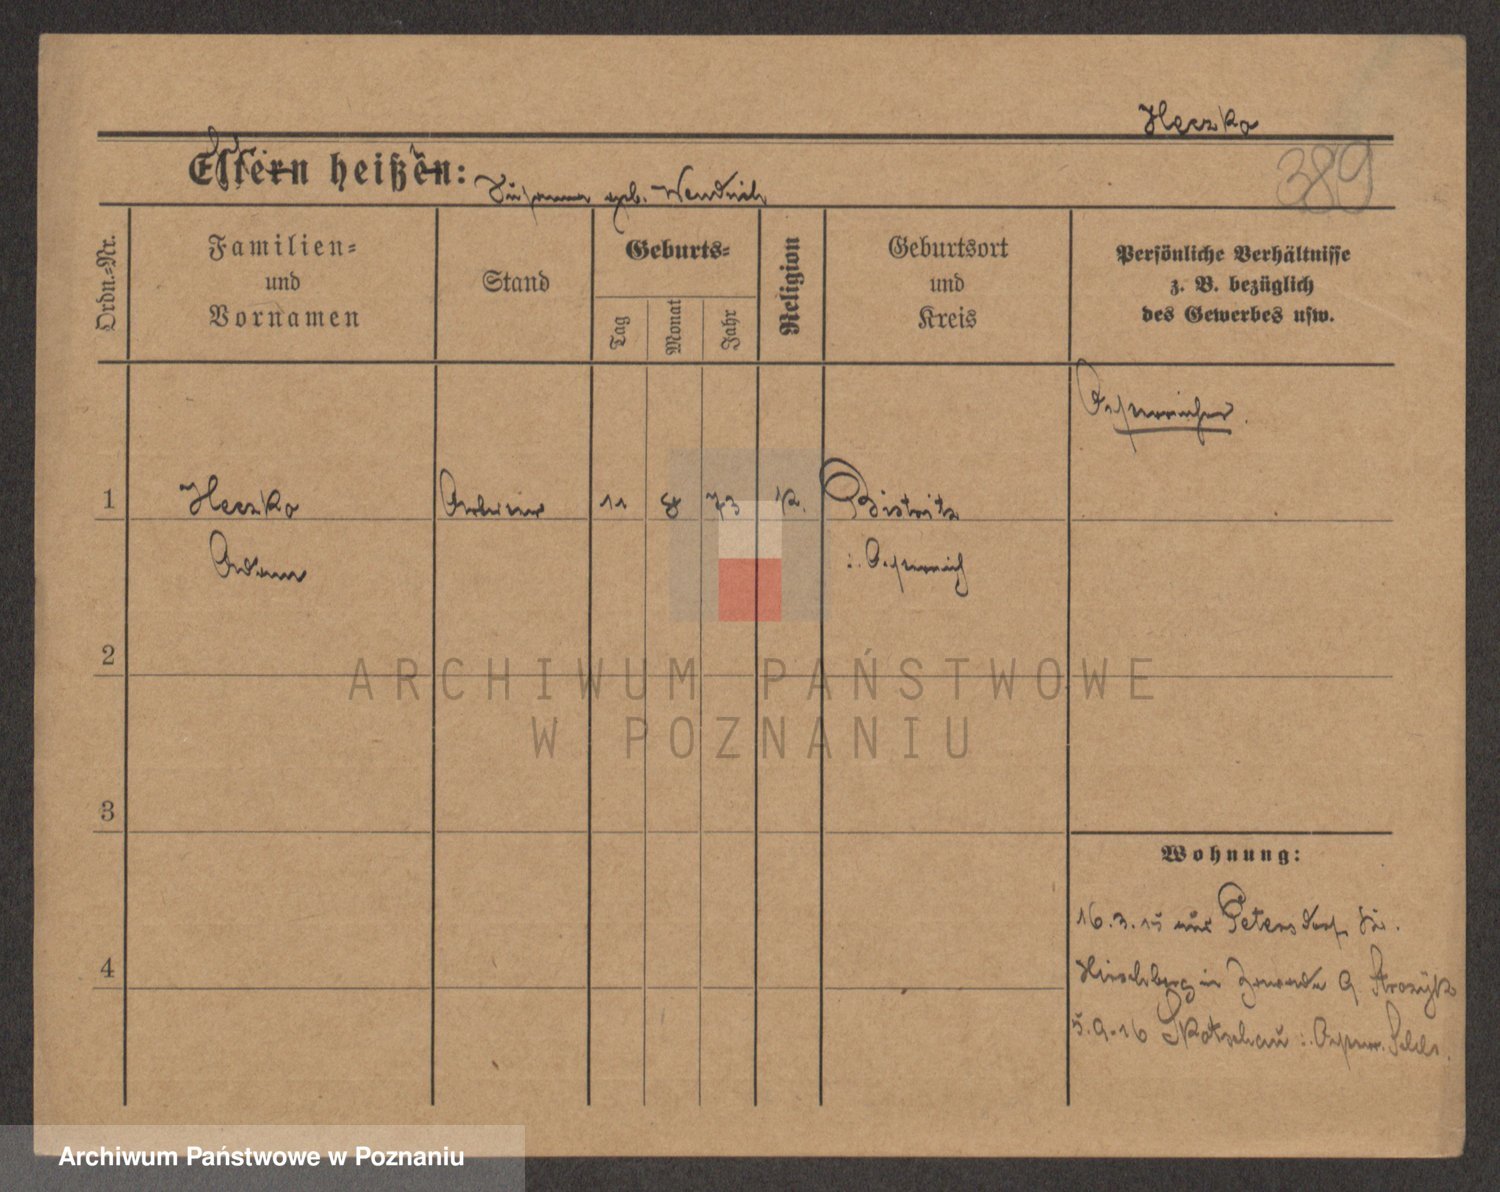 Heczko
389
Eltern heißen:
Susanna geb. Wendrich
Ordn.-Nr.
Familien- und Vornamen
Stand
Geburts-
Tag
Monat
Jahr
Religion
Geburtsort und Kreis
Persönliche Verhältnisse
z. B. bezüglich
des Gewerbes usw.
Oesterreicher.
1 Heczko Arbeiter 11 8 73 k. Bistritz
Adam i. Oesterreich
2
ARCHIWUM PAŃSTWOWE
W POZNANIU
3
Wohnung:
16.3.15 aus Petersdorf Kr.
4
Hirschberg in
5.9.16 Skotschau i. Oesterr. Schles.
Archiwum Państwowe w Poznaniu